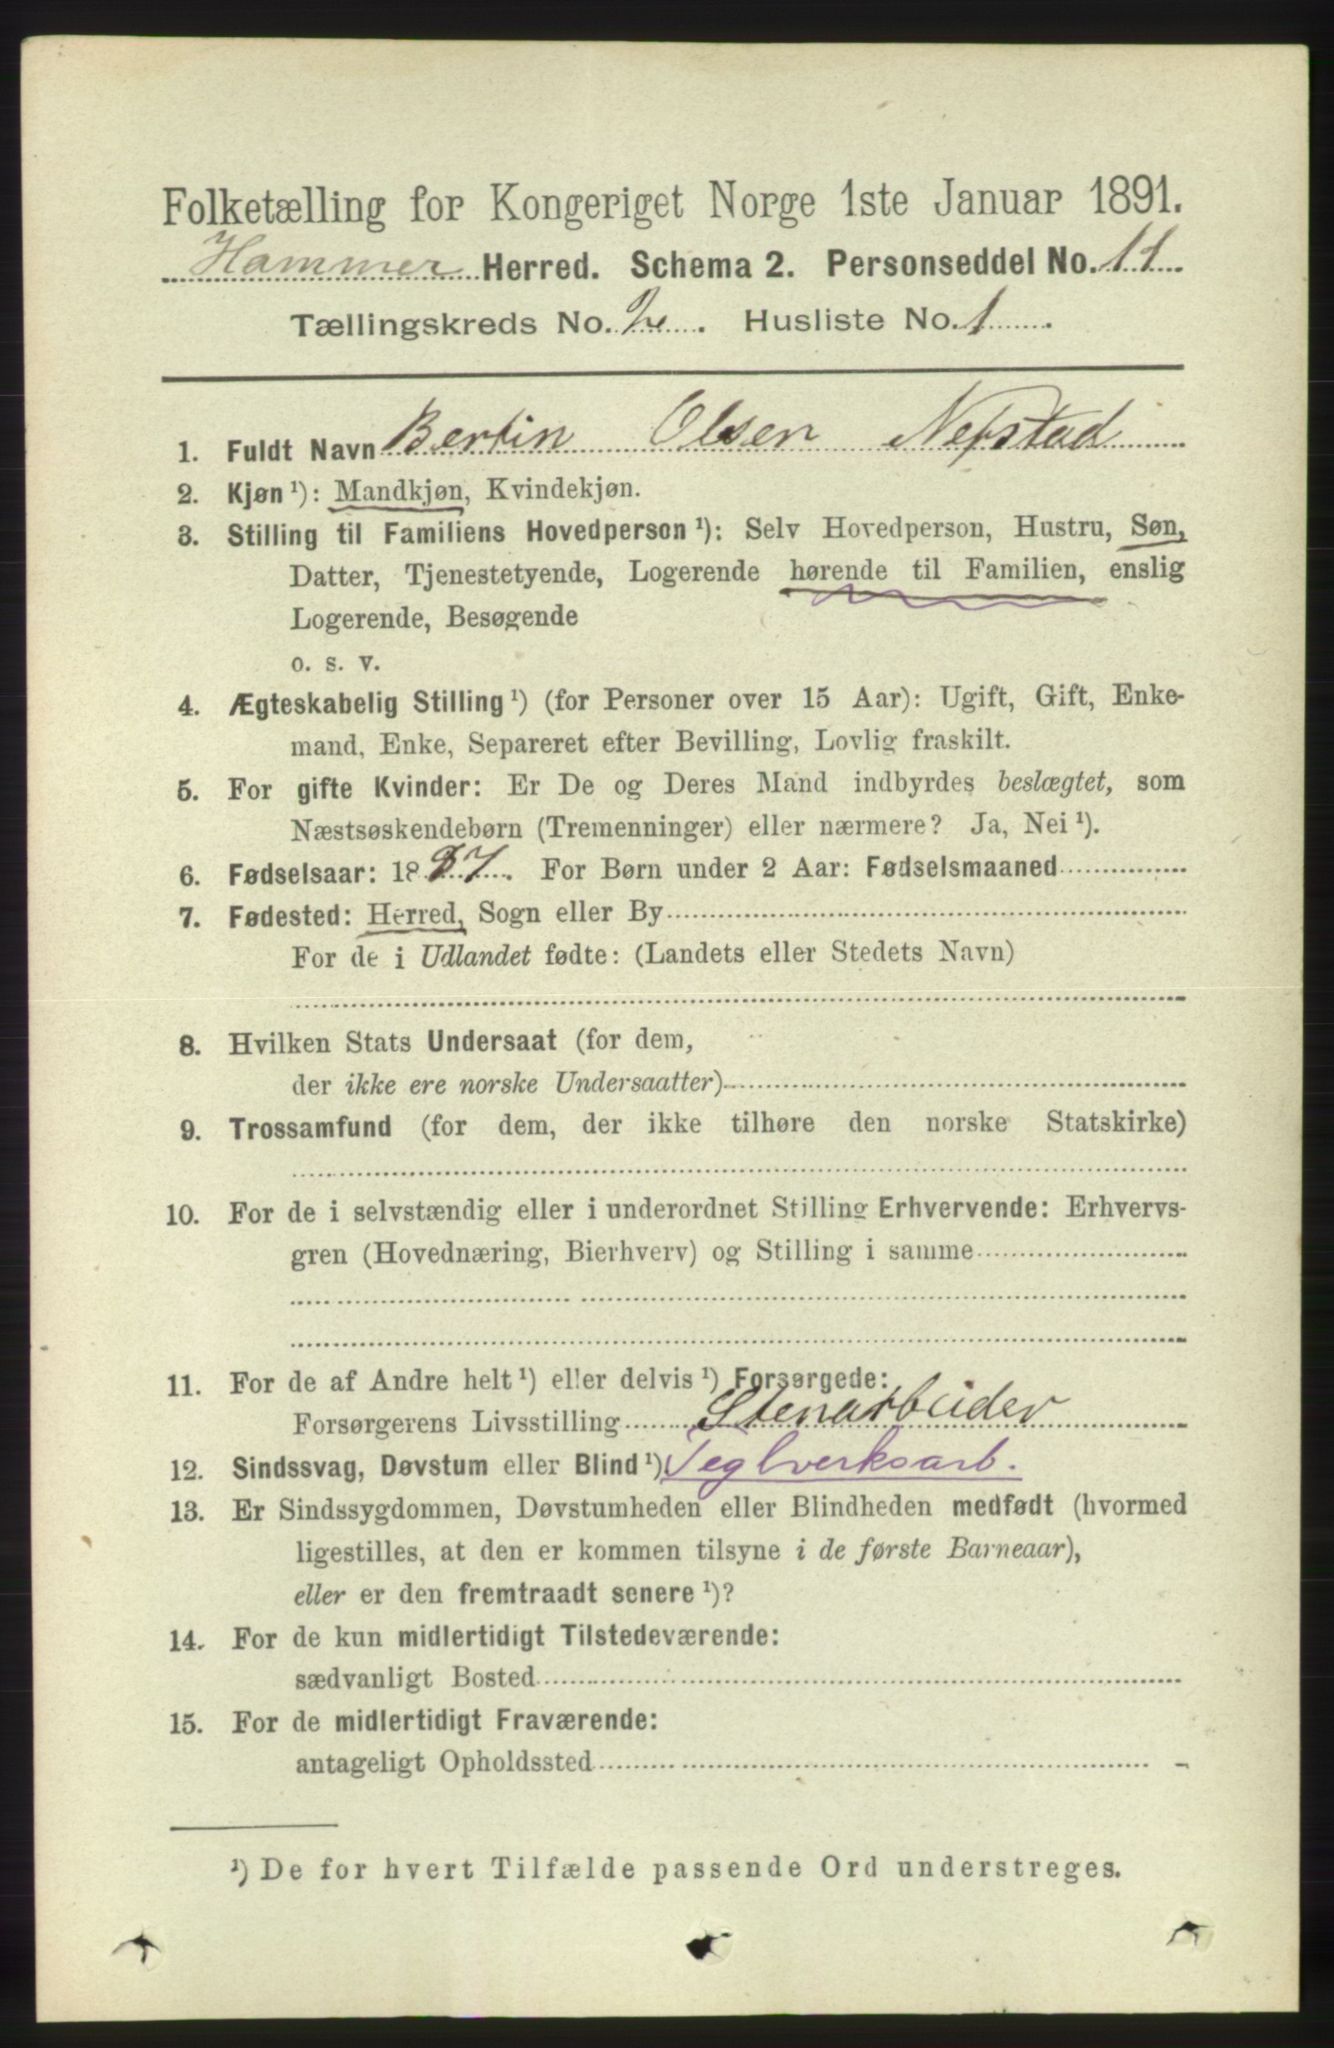 Folketælling for Kongeriget Norge 1ste Januar 1891.
Hammer Herred. Schema 2. Personseddel No. 11
Tællingskreds No. 2. Husliste No. 1
1. Fuldt Navn Bertin Olsen Nefstad
2. Kjøn ¹): Mandkjøn, Kvindekjøn.
3. Stilling til Familiens Hovedperson ¹): Selv Hovedperson, Hustru, Søn,
Datter, Tjenestetyende, Logerende hørende til Familien, enslig
Logerende, Besøgende
o. s. v.
4. Ægteskabelig Stilling ¹) (for Personer over 15 Aar): Ugift, Gift, Enke-
mand, Enke, Separeret efter Bevilling, Lovlig fraskilt.
5. For gifte Kvinder: Er De og Deres Mand indbyrdes beslægtet, som
Næstsøskendebørn (Tremenninger) eller nærmere? Ja, Nei ¹).
6. Fødselsaar: 1887. For Børn under 2 Aar: Fødselsmaaned
7. Fødested: Herred, Sogn eller By
For de i Udlandet fødte: (Landets eller Stedets Navn)
8. Hvilken Stats Undersaat (for dem,
der ikke ere norske Undersaatter)
9. Trossamfund (for dem, der ikke tilhøre den norske Statskirke)
10. For de i selvstændig eller i underordnet Stilling Erhvervende: Erhvervs-
gren (Hovednæring, Bierhverv) og Stilling i samme
11. For de af Andre helt ¹) eller delvis ¹) Forsørgede:
Forsørgerens Livsstilling Stenarbeider
12. Sindssvag, Døvstum eller Blind ¹) Teglverksarb.
13. Er Sindssygdommen, Døvstumheden eller Blindheden medfødt (hvormed
ligestilles, at den er kommen tilsyne i de første Barneaar),
eller er den fremtraadt senere ¹)?
14. For de kun midlertidigt Tilstedeværende:
sædvanligt Bosted
15. For de midlertidigt Fraværende:
antageligt Opholdssted
¹) De for hvert Tilfælde passende Ord understreges.